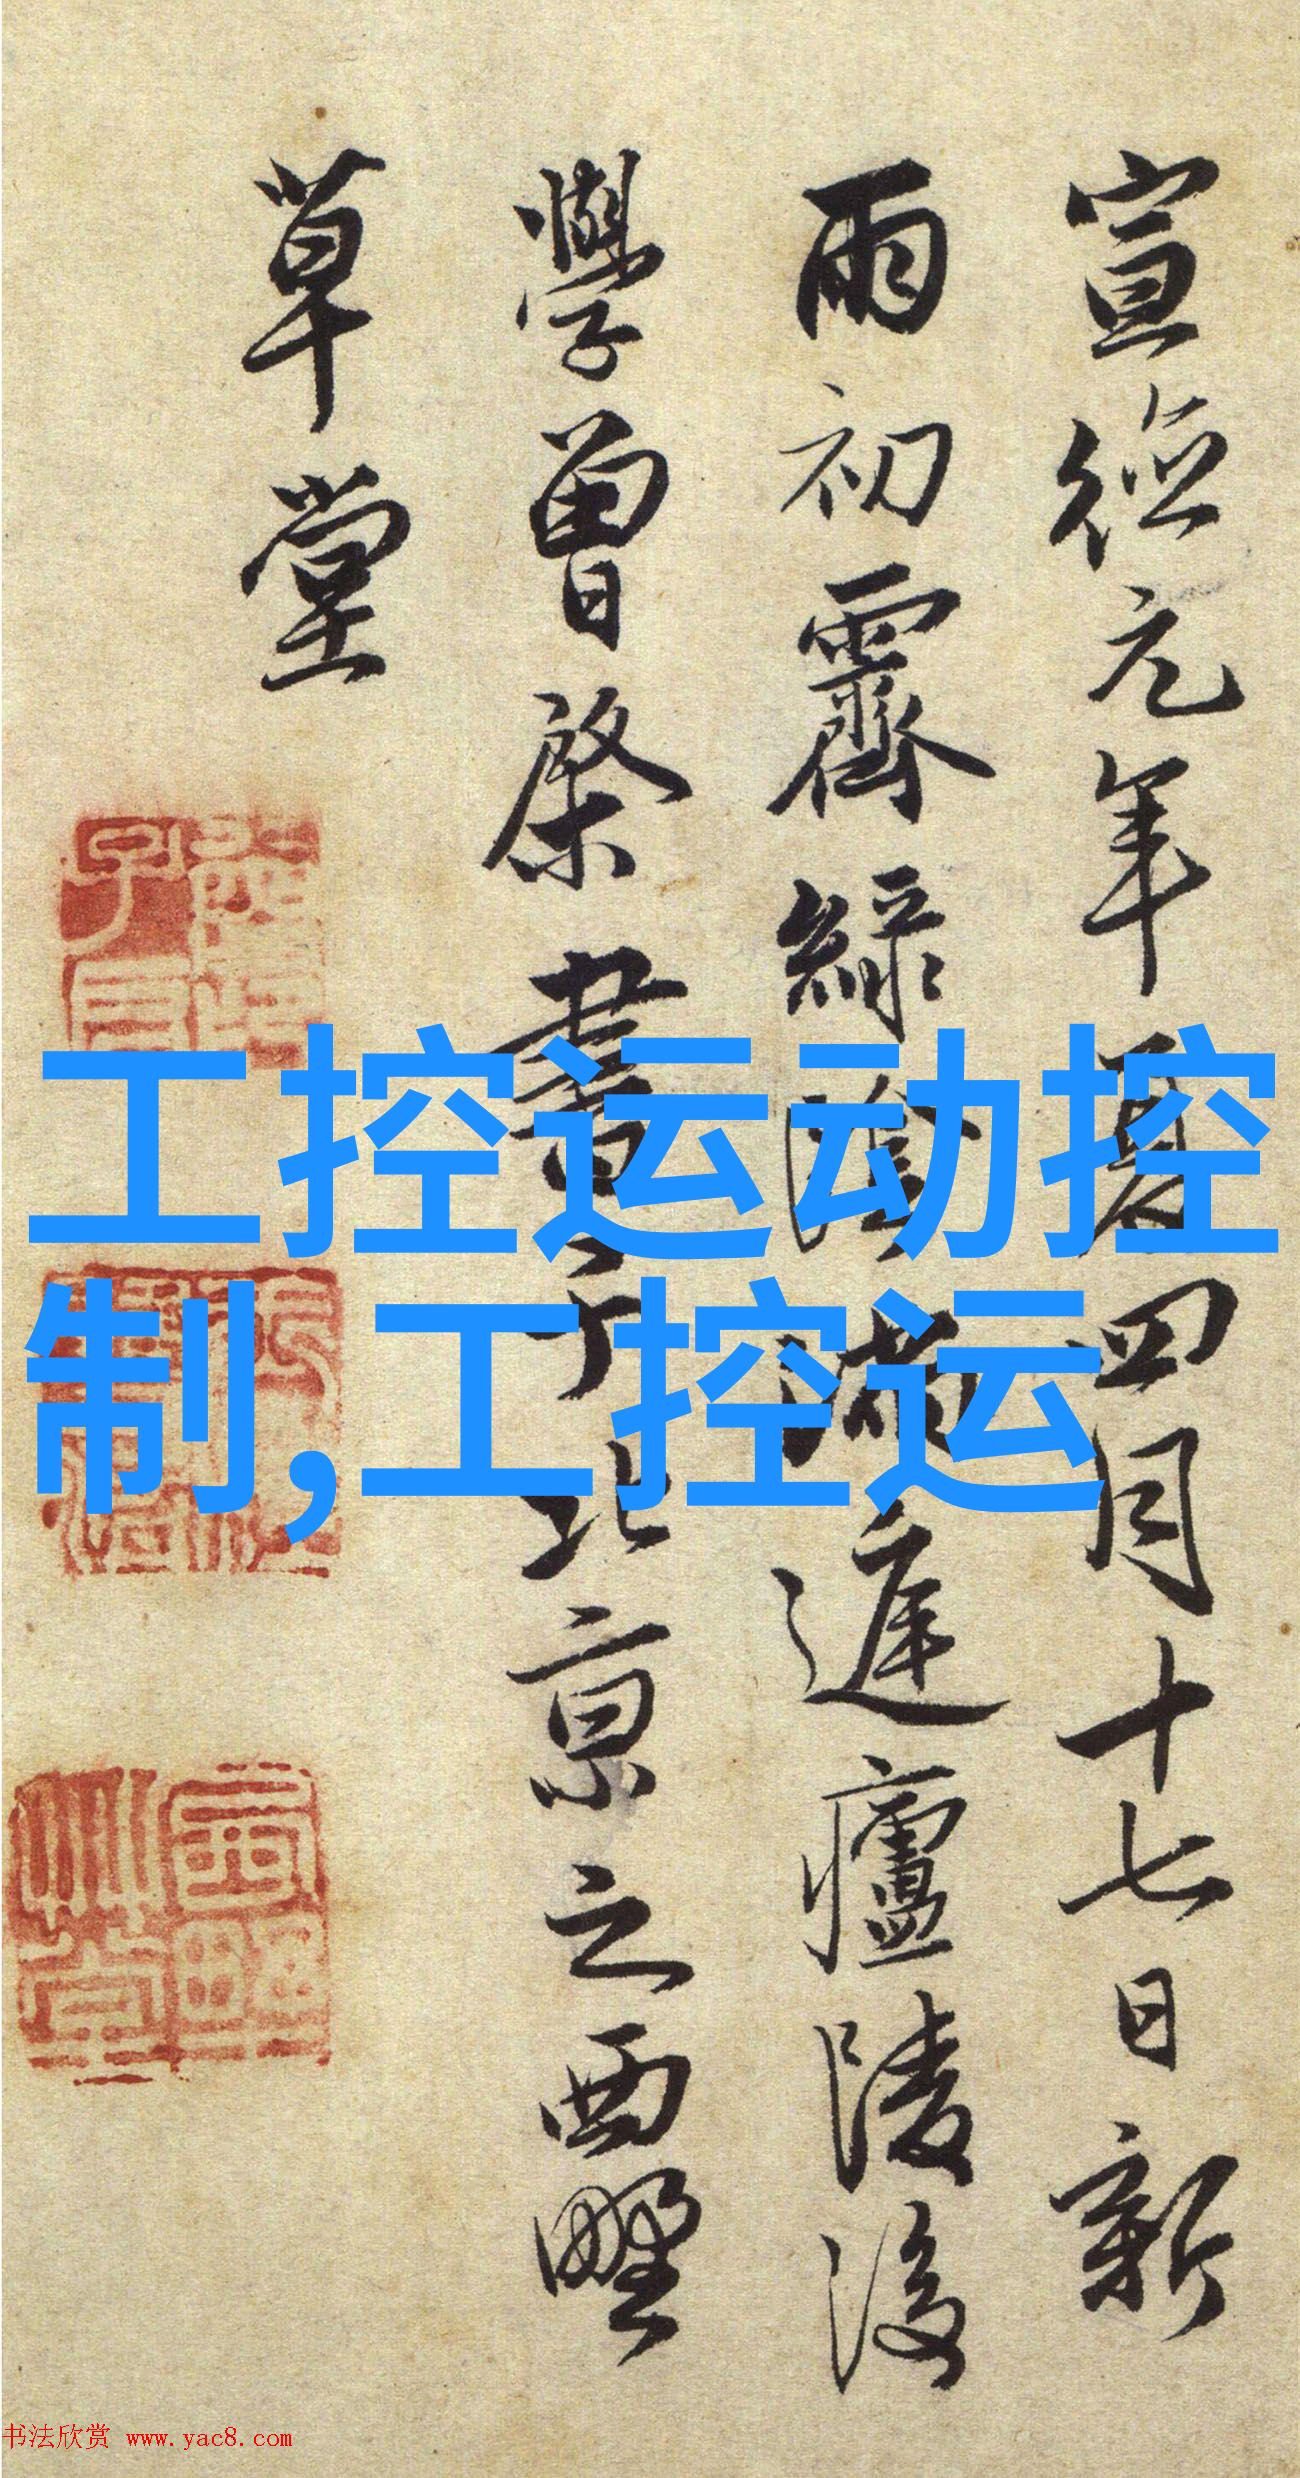 宣德元年夏四月十七日新
雨初霽綠陰滿庭廬陵後
學曾棨書于北京之西墅
草堂
工控运动控
制,工控运
书法欣赏 www.yac8.com